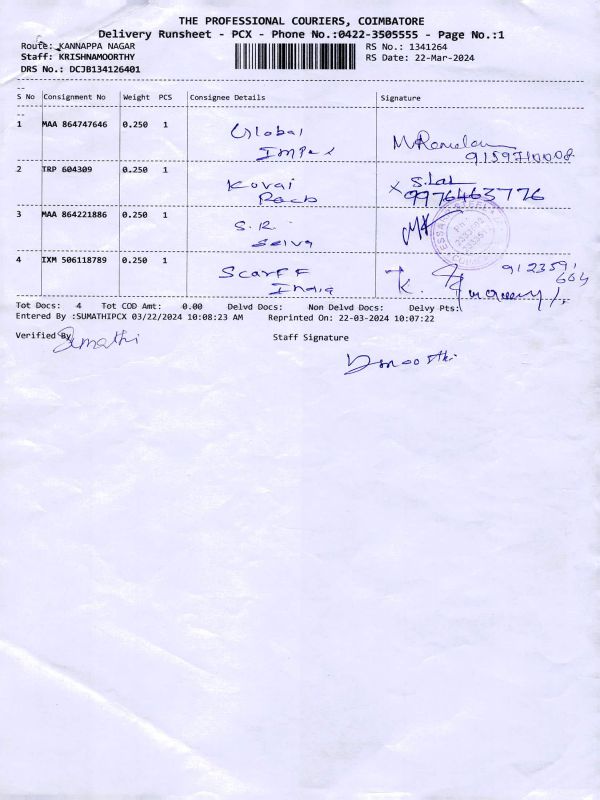 THE PROFESSIONAL COURIERS, COIMBATORE
Delivery Runsheet - PCX - Phone No.:0422-3505555 - Page No.:1
Route: KANNAPPA NAGAR
RS No.: 1341264
Staff: KRISHNAMOORTHY
RS Date: 22-Mar-2024
DRS No.: DCJB134126401
S No Consignment No Weight PCS Consignee Details Signature
1 MAA 864747646 0.250 1 Global
9159710008
2 TRP 604309 0.250 1 Kovai S.Lal
9976463776
3 MAA 864221886 0.250 1 S.R.
Selva
4 IXM 506118789 0.250 1 Scarff 912359
India K. 604
Tot Docs: 4 Tot COD Amt: 0.00 Delvd Docs: Non Delvd Docs: Delvy Pts:
Entered By :SUMATHIPCX 03/22/2024 10:08:23 AM Reprinted On: 22-03-2024 10:07:22
Verified By Sumathi Staff Signature